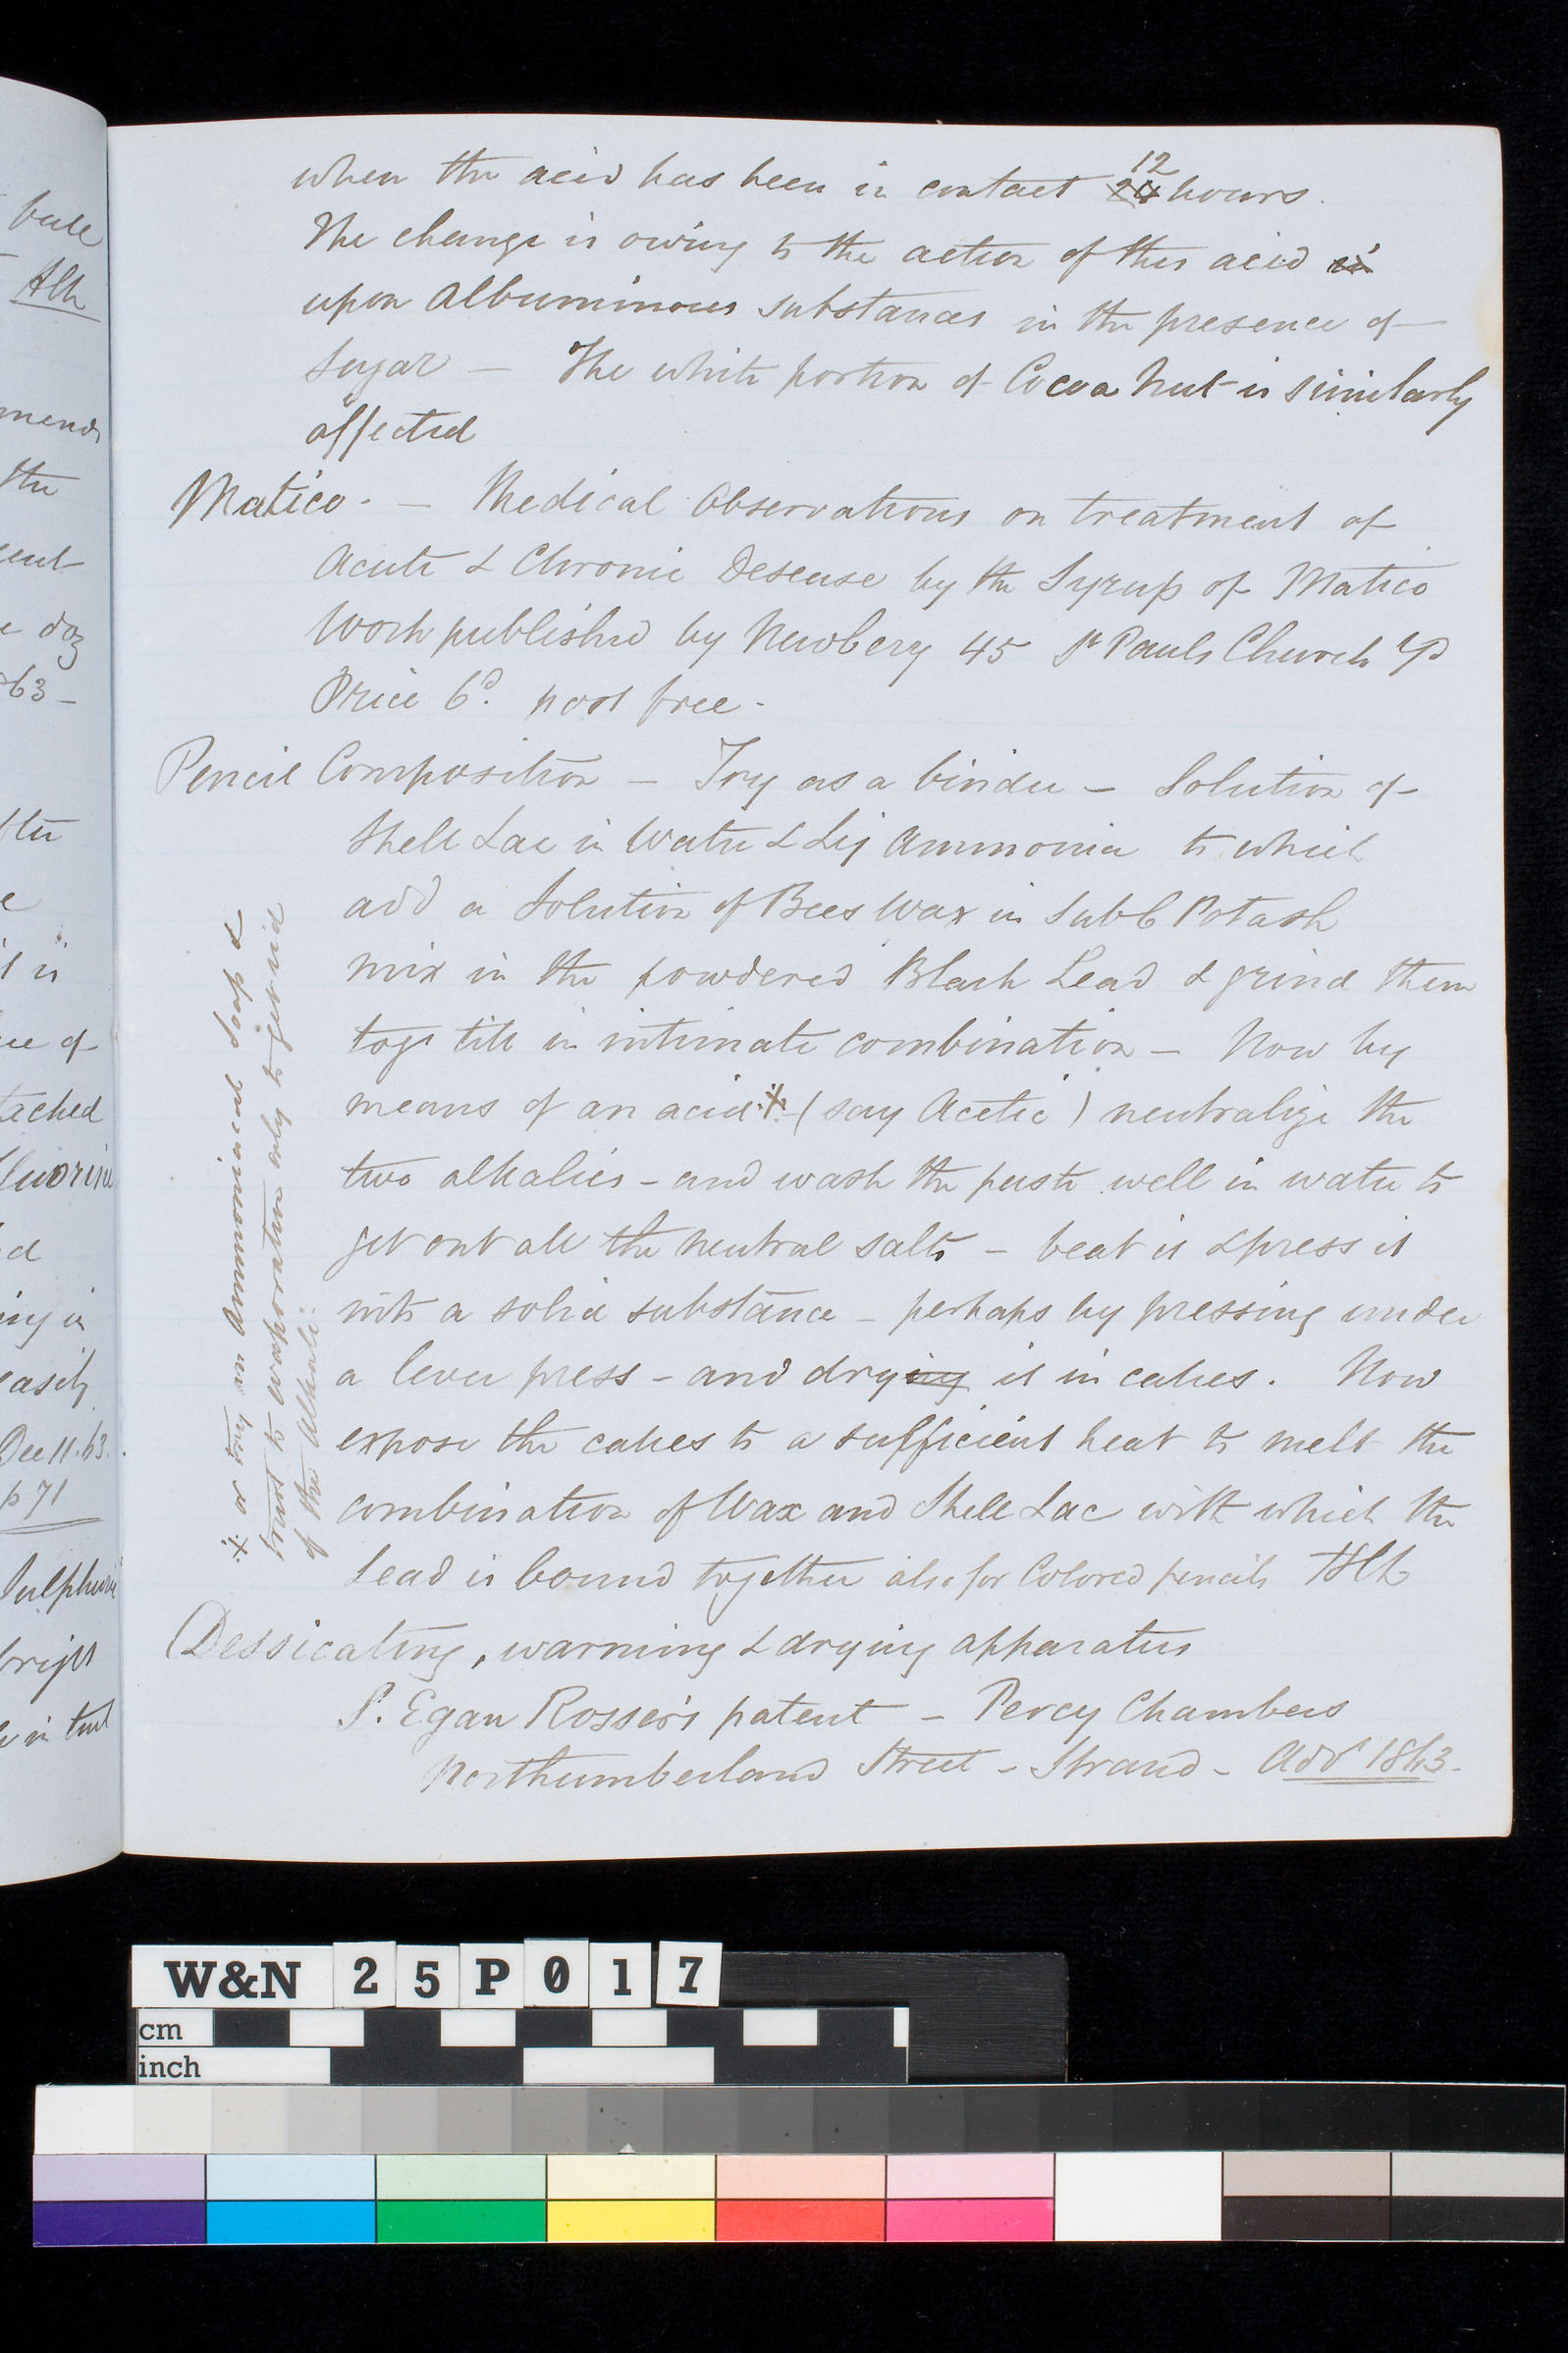 when the acid has been in contact 24 12 hours.
The change is owing to the action of this acid in
upon Albuminous substances in the presence of
Sugar — The white portion of Cocoa Nut is similarly
affected
Matico. — Medical Observations on treatment of
Acute & Chronic Desease by the Syrup of Matico
Work published by Newbery 45 St Pauls Church Yd
Price 6d. post free -
Pencil Composition — Try as a binder — Solution of
Shell Lac in Water & Liq Ammonia to which
add a Solution of Bees Wax in SubC Potash
mix in the powdered Black Lead & grind them
togr till in intimate combination — Now by
means of an acid ※ (say Acetic) neutralize the
two alkalies - and wash the paste well in water to
get out all the neutral salts - beat it & press it
into a solid substance - perhaps by pressing under
a lever press - and drying it in cakes. Now
expose the cakes to a sufficient heat to melt the
combination of Wax and Shell Lac with which the
Lead is bound together also for Colored pencils
※ or try an Ammoniacal Soap &
trust to evaporation only to get rid
of the Alkali.
Dessicating, warming & drying apparatus
P. Egan Rosser's patent - Percy Chambers
Northumberland Street - Strand - Advt 1863.
bule
mend
the
doz
63 -
it is
ce of
tached
luorine
d
ing in
easily
Dec 11. 63.
p 71
Sulphuric
bright
W&N 25P017
cm
inch